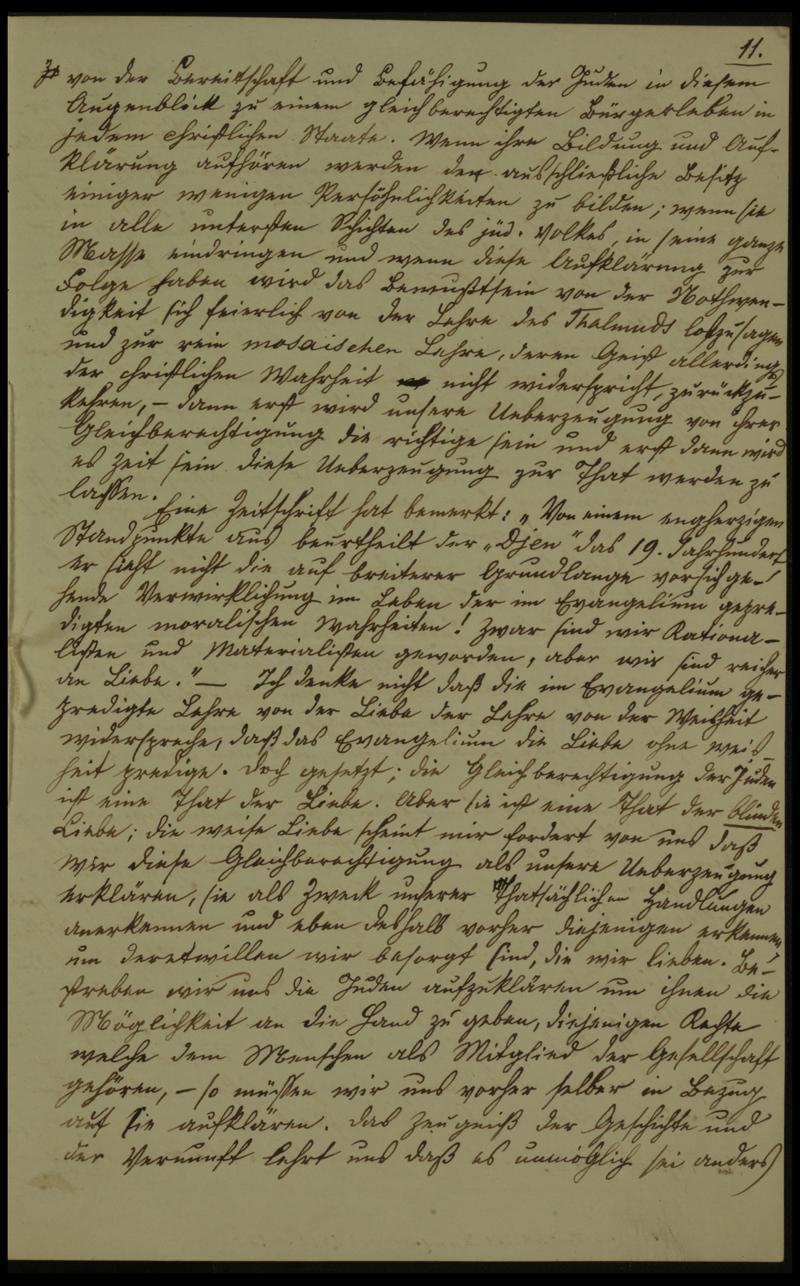 11.
von der Bereitschaft und Befähigung der Juden in diesem
Augenblick zu einem gleichberechtigten Bürgerleben in
jedem christlichen Staate. Wenn ihre Bildung und Auf-
klärung aufhören werden den ausschließliche Besitz
einiger wenigen Persöhnlichkeiten zu bilden; wenn sie
in alle untersten Schichten des jüd. Volkes, in seine ganze
Masse eindringen und wenn diese Aufklärung zur
Folge haben wird das Bewußtsein von der Nothwen-
digkeit sich feierlich von der Lehre des Thalmuds loszusagen
und zur rein mosaischen Lehre, deren Geist allerdings
der christlichen Wahrheit nicht widerspricht, zurückzu-
kehren, – dann erst wird unsere Ueberzeugung von ihrer
Gleichberechtigung die richtige sein und erst dann wird
es Zeit sein diese Ueberzeugung zur That werden zu
lassen.
Eine Zeitschrift hat bemerkt: „Von einem engherzigen
Standpunkte aus beurtheilt der „Djen" das 19. Jahrhundert
er sieht nicht die auf breiterer Grundlange vorsichge-
hende Verwirklichung im Leben der im Evangelium gepre-
digten moralischen Wahrheiten! Zwar sind wir Rationa-
listen und Materialisten geworden, aber wir sind reicher
an Liebe." – Ich denke nicht daß die im Evangelium ge-
predigte Lehre von der Liebe der Lehre von der Weisheit
widerspreche, daß das Evangelium die Liebe ohne Weis-
heit predige. Doch gesetzt; die Gleichberechtigung der Juden
ist eine That der Liebe. Aber sie ist eine That der blinden
Liebe; die weise Liebe scheint mir fordert von uns daß
wir diese Gleichberechtigung als unsere Ueberzeugung
erklären, sie als Zweck unserer thatsächlichen Handlungen
anerkennen und eben deshalb vorher diejenigen erkennen
um deretwillen wir besorgt sind, die wir lieben. Be-
streben wir uns die Juden aufzuklären um ihnen die
Möglichkeit an die Hand zu geben, diejenigen Rechte
welche dem Menschen als Mitglied der Gesellschaft
gehören, – so müssen wir uns vorher selber in Bezug
auf sie aufklären. Das Zeugniß der Geschichte und
der Vernunft lehrt uns daß es unmöglich sei anders